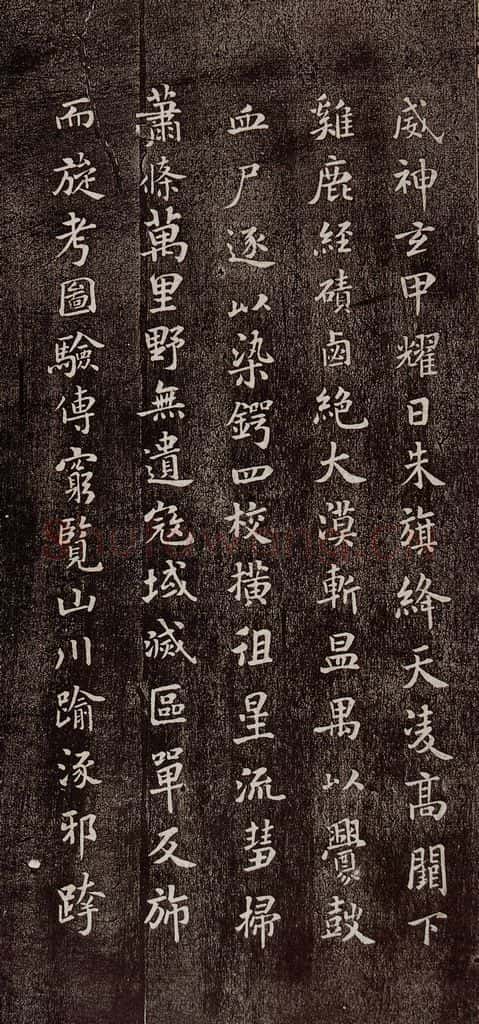 威神玄甲耀日朱旗絳天淩高闕下
雞鹿經磧鹵絕大漠斬昷禺以釁鼓
血尸逐以染鍔四校橫徂星流彗掃
蕭條萬里野無遺寇域滅區單反斾
而旋考圖驗傳窮覽山川踰涿邪跨